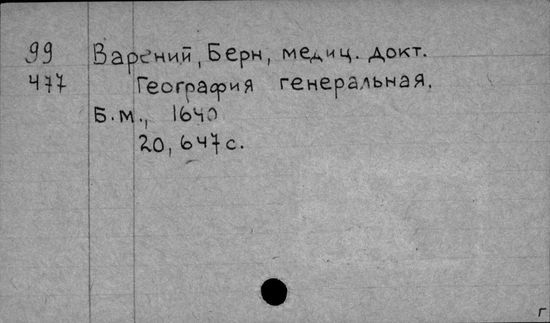 99 Варений, Берн, медиц. докт.
477 География генеральная.
Б.м., 1640
20, 647 с.
г